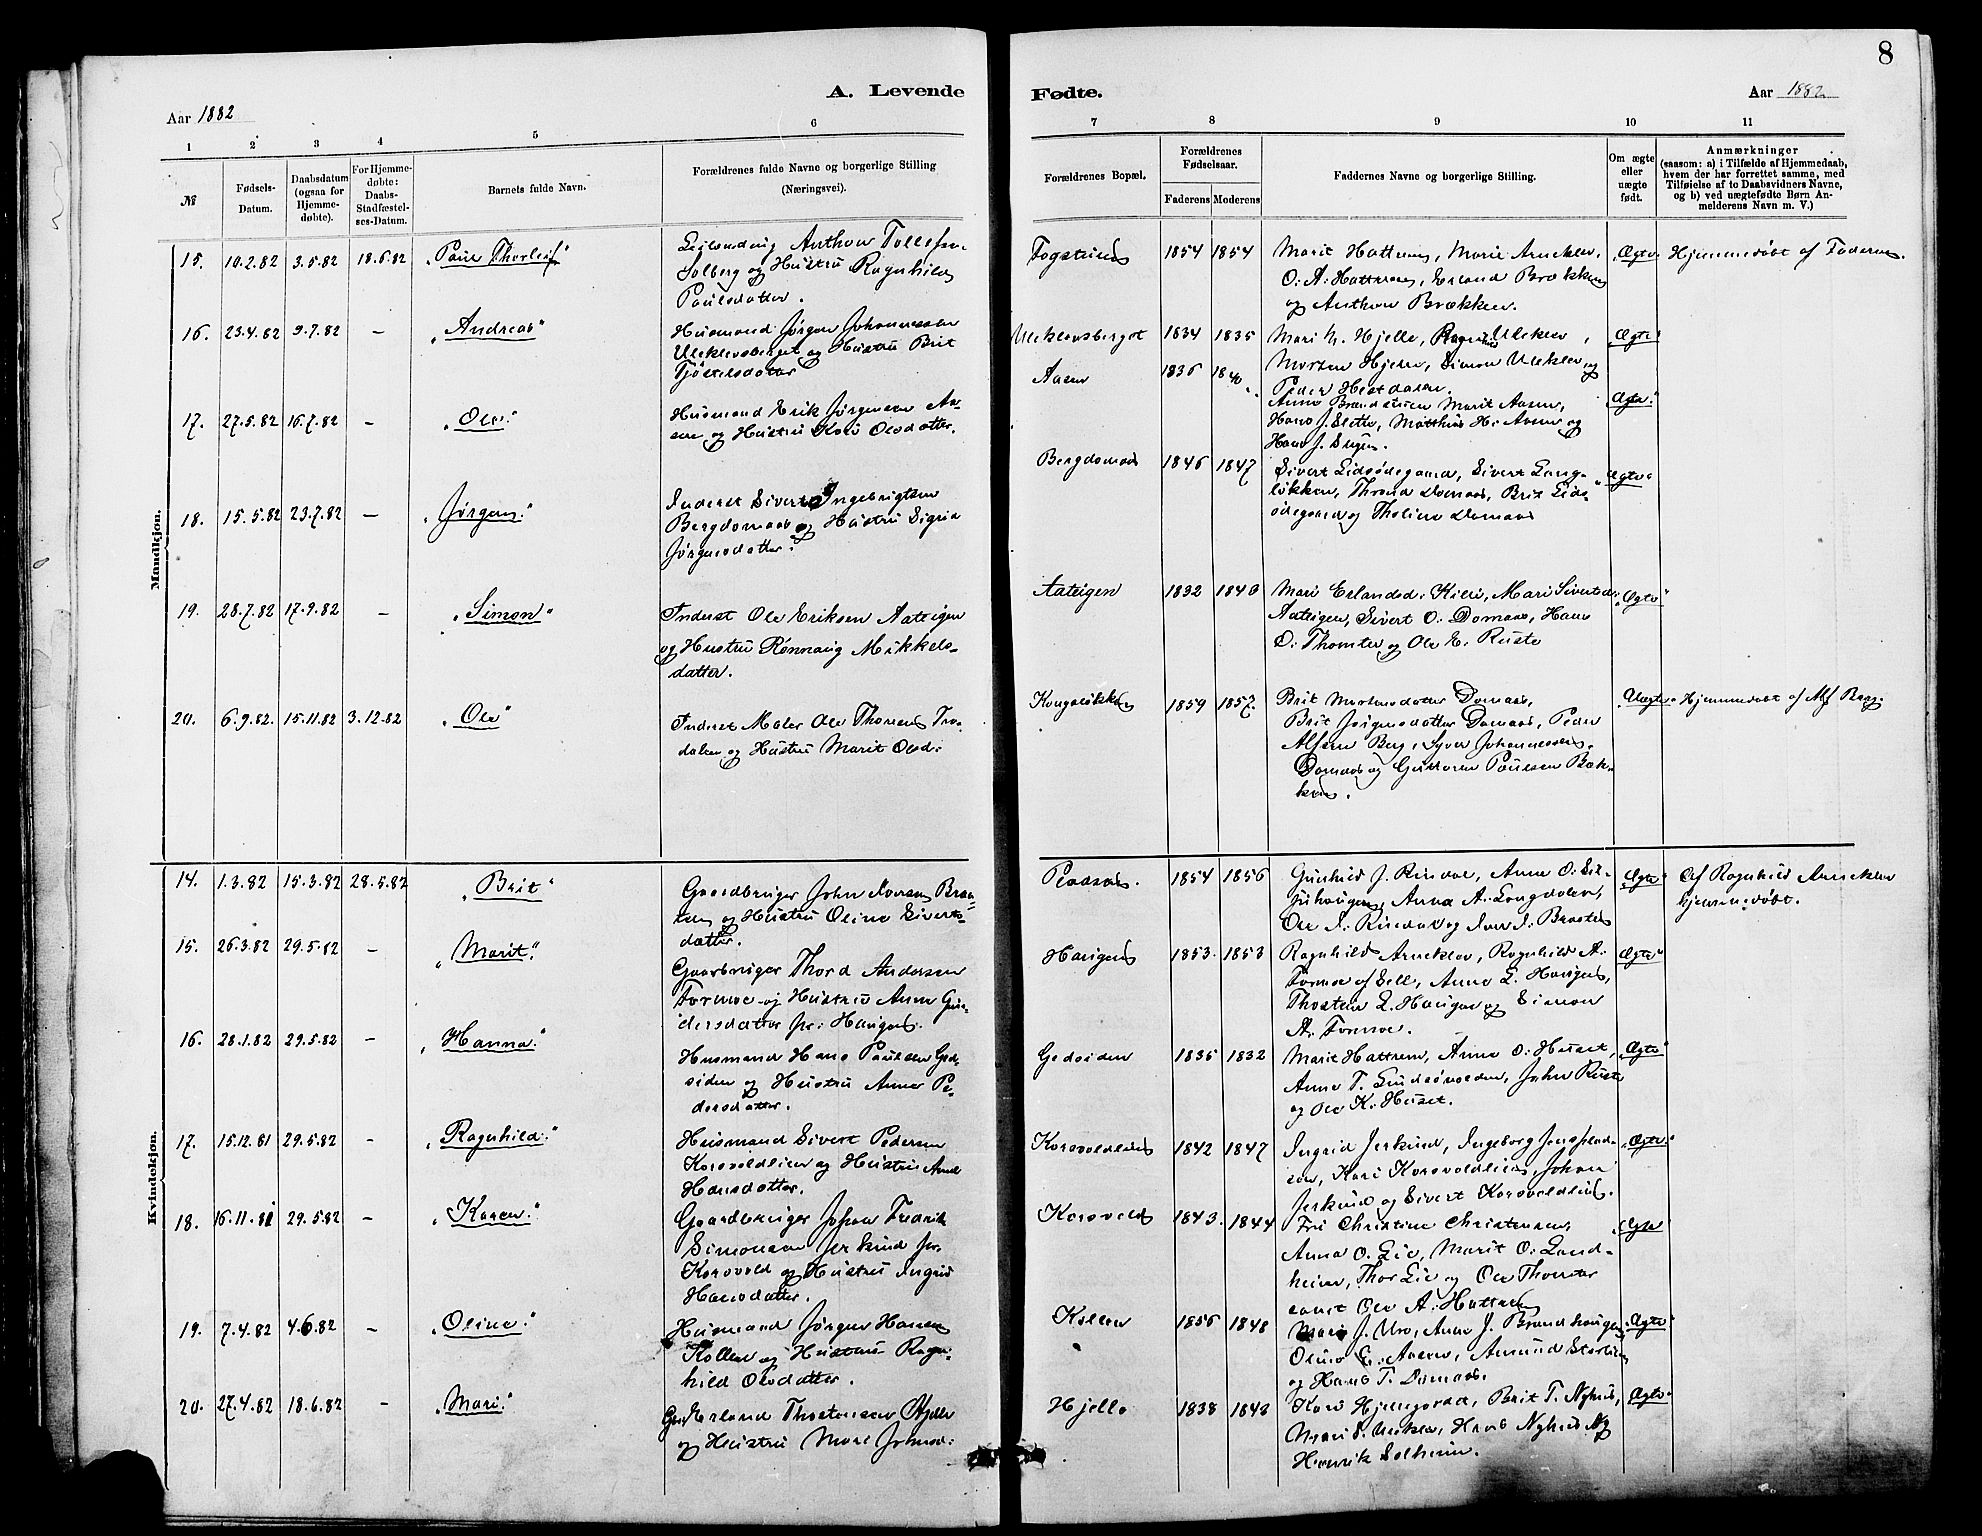 8
A. Levende
Fødte.
Aar 1882
Aar 1882
1 2 3 4 5 6
7 8 9 10 11
№
Fødsels-
Datum.
Daabsdatum
(ogsaa for
Hjemme-
døbte).
For Hjemme-
døbte:
Daabs-
Stadfæstel-
ses-Datum.
Barnets fulde Navn.
Forældrenes fulde Navne og borgerlige Stilling
(Næringsvei).
Forældrenes Bopæl.
Forældrenes
Fødselsaar.
Faderens Moderens
Faddernes Navne og borgerlige Stilling.
Om ægte
eller
uægte
født.
Anmærkninger
(saasom: a) i Tilfælde af Hjemmedaab,
hvem der har forrettet samme, med
Tilføielse af to Daabsvidners Navne,
og b) ved uægtefødte Børn An-
melderens Navn m. V.)
Mandkjøn.
15. 10.2.82 3.5.82 18.6.82 "Paul Thorleif"
Leilending Anthon Tollefsen
Solberg og Hustru Ragnhild
Paulsdatter.
1854 1854
Marit Hattrem, Marie Arneklev,
O. A. Hattrem, Erland Brækken
og Anthon Brækken.
"Ægte" Hjemmedøbt af Faderen.
16. 23.4.82 9.7.82 — "Andreas"
Husmand Jørgen Johannessen
Uleklevsberget og Hustru Brit
Tjøstelsdatter
Uleklevsberget 1834 1835
Mari N. Hjelle, Uleklev,
Morten Hjelle, Simon Uleklev og
Peder
"Ægte"
17. 27.5.82 16.7.82 — "Ole."
Husmand Erik Jørgensen Aa-
sen og Hustru Kari Olsdatter.
Aasen 1836 1840
Anne Brandstuen Marit Aasen,
Hans J. Slette, Matthias H. Aasen og
Hans J.
"Ægte."
18. 15.5.82 23.7.82 — "Jørgen."
Inderst Sivert Ingebrigtsen
Bergdomaas og Hustru Sigrid
Jørgensdatter.
Bergdomaas 1846 1847
Sivert Lidsødegaard, Sivert Lang-
løkken, Thrond Domaas, Brit Lids-
ødegaard og Tholine Domaas
"Ægte"
19. 28.7.82 17.9.82 — "Simon"
Inderst Ole Eriksen Aateigen
og Hustru Rønnaug Mikkels-
datter.
Aateigen 1832 1840
Mari Erlandsd. Kileé, Mari Sivertsd.
Aateigen, Sivert O. Domaas, Hans
O. Thomter og Ole E. Ruste
"Ægte"
20. 6.9.82. 15.11.82 3.12.82 "Ole"
Inderst Maler Ole Thoresen
og Hustru Marit Olsd.
Kongsløkken 1859 1857.
Brit Mortensdatter Domaas,
Brit Jørgensdatter Domaas, Peder
Alfsen Berg, Syver Johannessen
Domaas og Guttorm Paulsen Bæk-
ken.
"Uægte" Hjemmedøbt af Alf Berg
Kvindekjøn.
14. 1.3.82 15.3.82 28.5.82 "Brit"
Gaardbruger John Iversen
og Hustru Oline Siverts-
datter.
1854 1856
Gunhild J. Rindal, Anne O. Sel-
juhaugen, Anna A. Langdalen,
Ole J. Rindal og Iver J.
"Ægte" Af Ragnhild Arneklev
hjemmedøbt.
15. 26.3.82 29.5.82 — "Marit."
Gaarbruger Thord Andersen
Formoe og Hustru Anne Gun-
dersdatter pr: Haugen.
Haugen 1853. 1853
Ragnhild Arneklev, Ragnhild A.
Formoe af Sell, Anne L. Haugen,
Thosten L. Haugen og Simon
A. Formoe.
"Ægte"
16. 28.1.82 29.5.82 — "Hanna."
Husmand Hans Paulsen Ged-
siden og Hustru Anne Pe-
dersdatter.
Gedsiden 1835 1832
Marit Hattrem, Anne O. Huset,
Anne T. John Ruste
og Ole K. Huset.
"Ægte"
17. 15.12.81 29.5.82 — "Ragnhild."
Husmand Sivert Pedersen
Korsvoldlien og Hustru Anne
Hansdatter.
Korsvoldlien 1842 1847
Ingrid Jerkind, Ingeborg
Kari Korsvoldlien, Johan
Jerkind og Sivert Korsvoldlien.
"Ægte."
18. 16.11.81 29.5.82 — "Karen."
Gaardbruger Johan Fredrik
Simonsen Jerkind pr.
Korsvold og Hustru Ingrid
Hansdatter.
Korsvold 1843. 1844
Fru Christine Christensen,
Anna O. Lie, Marit O. Land-
heim, Thor Lie og Ole Thomter
samt Ole A. Hattrem
"Ægte"
19. 7.4.82 4.6.82 — "Oline."
Husmand Jørgen Hansen
Kollen og Hustru Ragn-
hild Olsdatter.
Kollen 1856 1848
Mari J. Uro, Anne J. Brandhaugen,
Oline E. Aasen, Amund
og Hans T. Domaas.
"Ægte"
20. 27.4.82 18.6.82 — "Mari."
Erland Thostensen Hjelle
og Hustru Mari Johnsd.
Hjelle 1838 1843
Kari Brit T. Nyhus,
Hans Nyhus og
Henrik Solheim.
"Ægte"